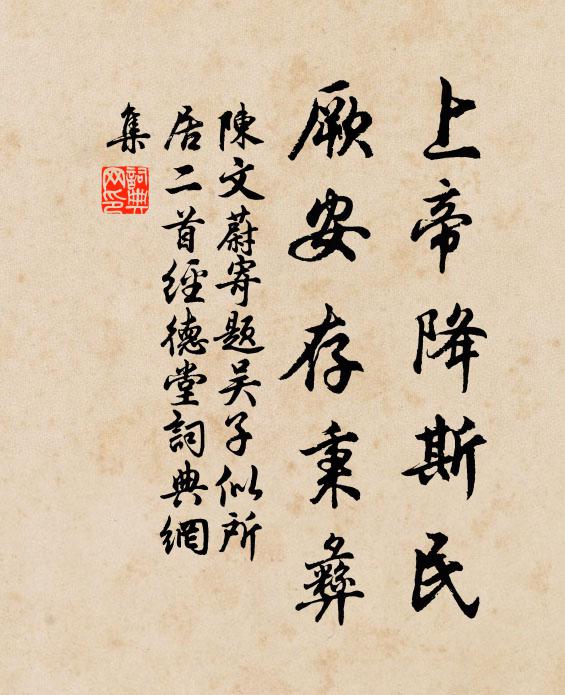 上帝降斯民
厥安存秉彝
陳文蔚寄題吴子似所
居二首經德堂詞典網
集
詞典
网印